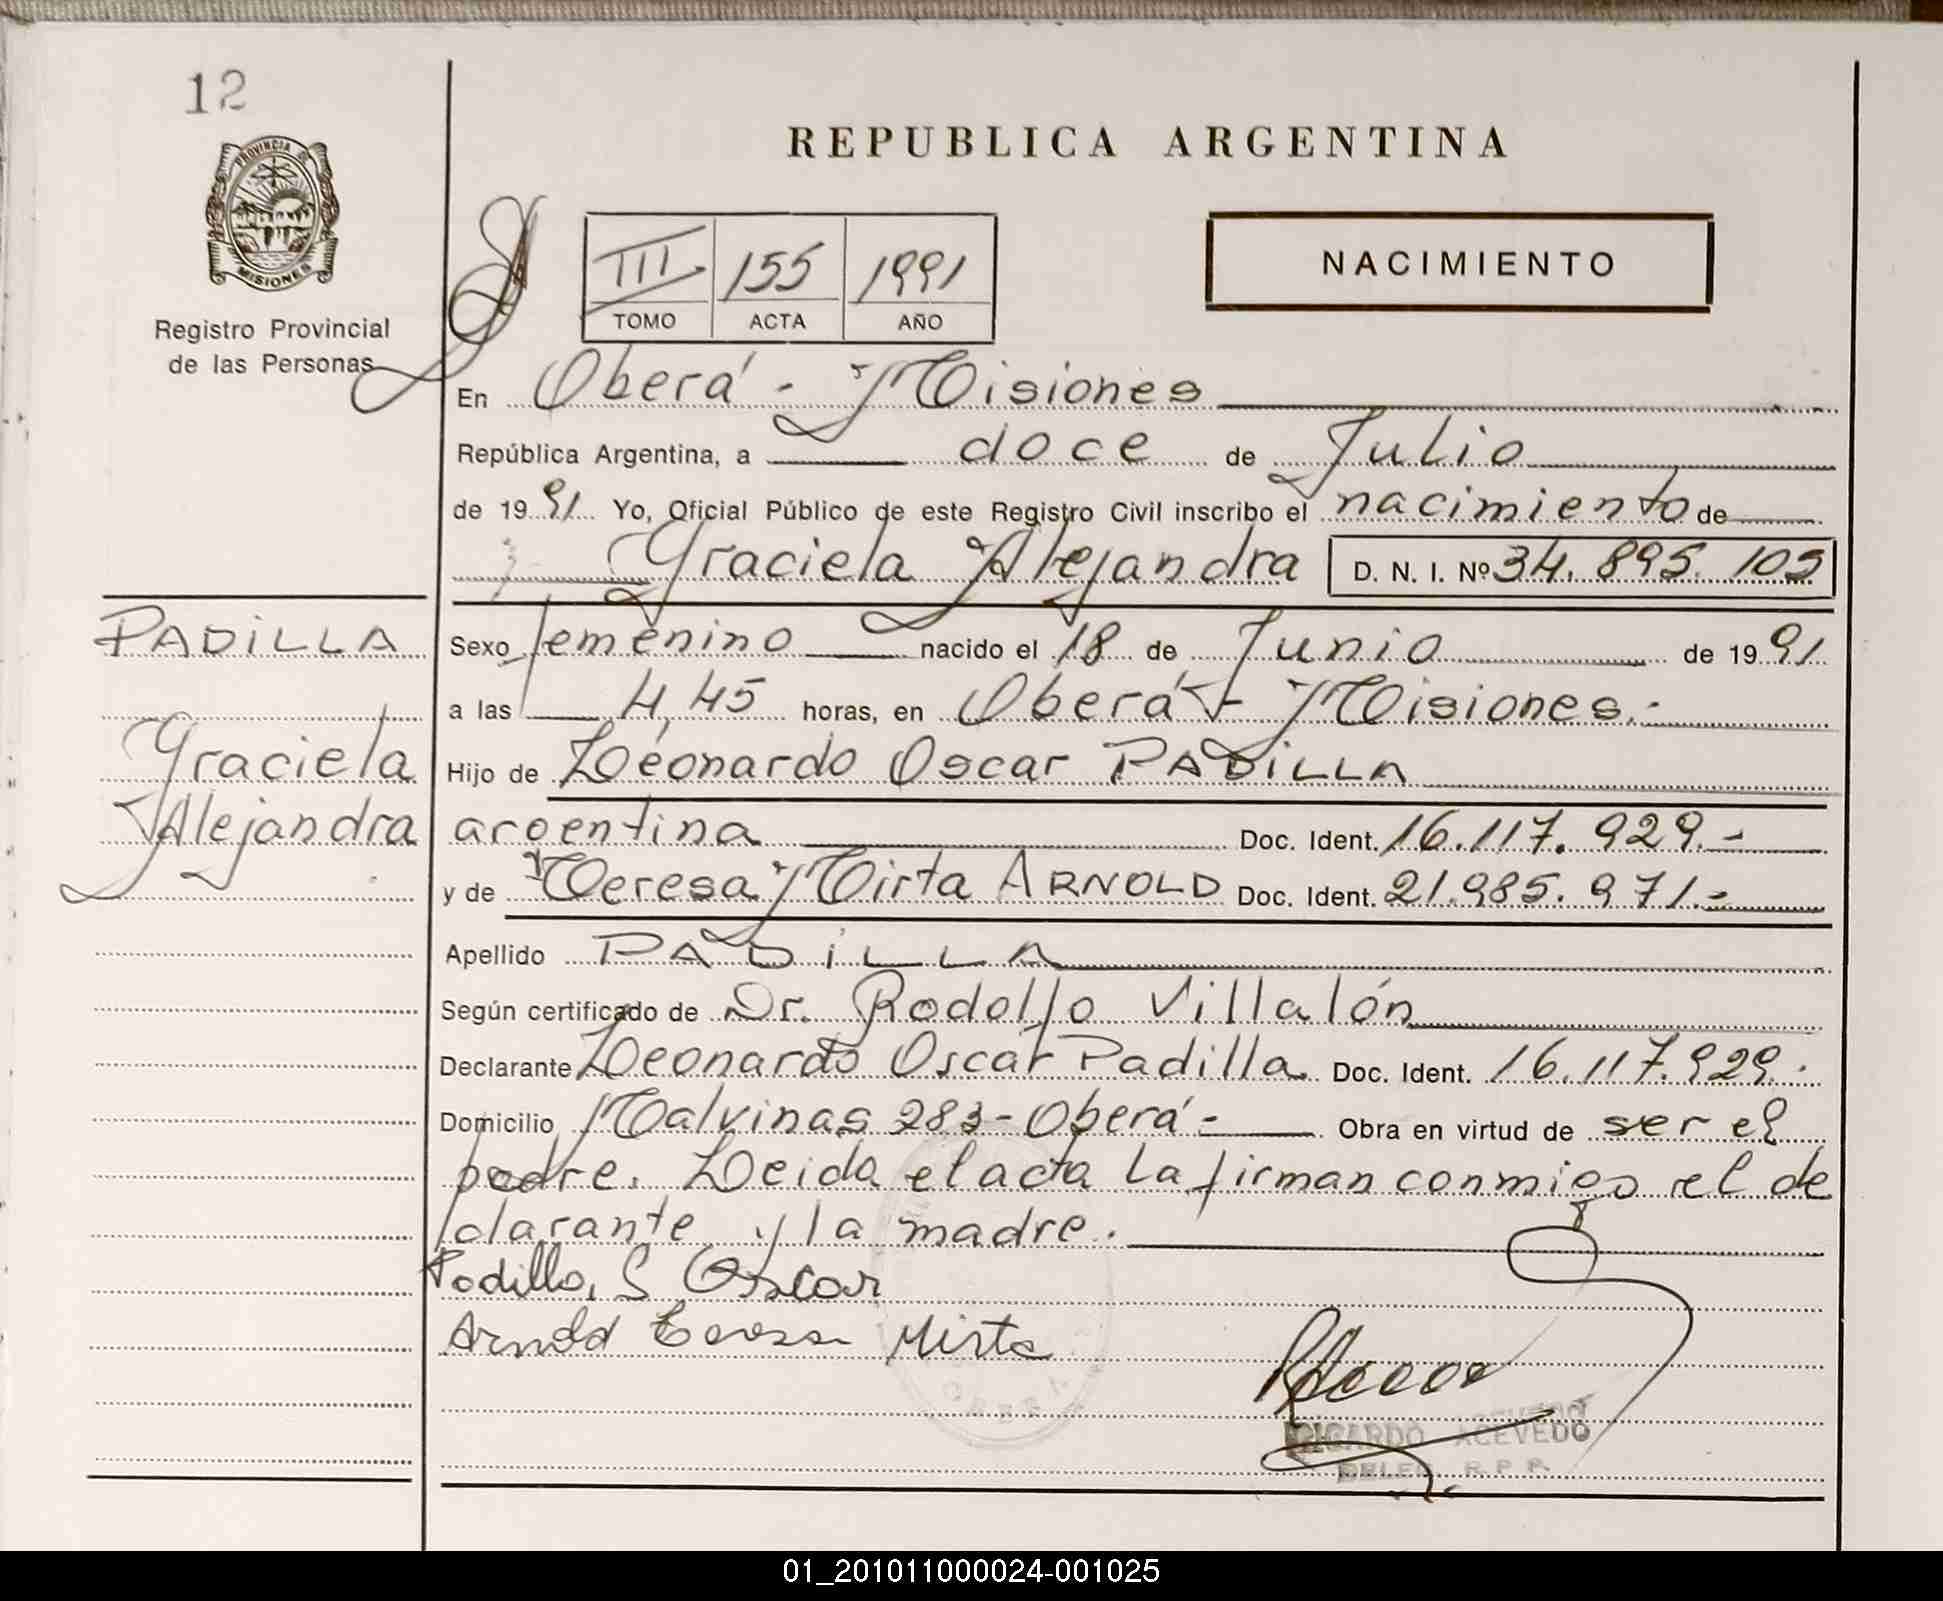 12
PROVINCIA DE
MISIONES
Registro Provincial
de las Personas
REPUBLICA ARGENTINA
III 155 1991
TOMO ACTA AÑO
NACIMIENTO
En Oberá - Misiones
República Argentina, a doce de Julio
de 1991 Yo, Oficial Público de este Registro Civil inscribo el nacimiento de
Graciela Alejandra D. N. I. Nº 34.895.105
PADILLA
Graciela
Alejandra
Sexo femenino nacido el 18 de Junio de 1991
a las 4,45 horas, en Oberá - Misiones.-
Hijo de Leonardo Oscar PADILLA
argentina Doc. Ident. 16.117.929.-
y de Teresa Mirta ARNOLD Doc. Ident. 21.985.971.-
Apellido PADILLA
Según certificado de Dr. Rodolfo Villalón
Declarante Leonardo Oscar Padilla Doc. Ident. 16.117.929.
Domicilio Malvinas 283 - Oberá - Obra en virtud de ser el
padre. Leida el acta la firman conmigo el de
clarante y la madre.
Padilla, L Oscar
Arnold Teresa Mirta
RICARDO ACEVEDO
DELEG. R.P.P.
01_201011000024-001025